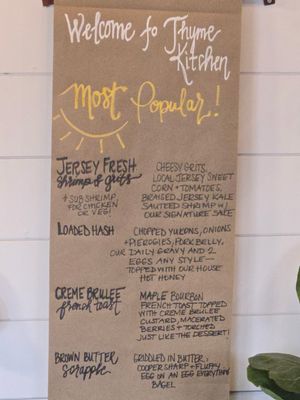 Welcome to Thyme
Kitchen
Most Popular!
JERSEY FRESH
shrimp & grits
+ SUB SHRIMP
FOR CHICKEN
OR VEG!
CHEESY GRITS,
LOCAL JERSEY SWEET
CORN + TOMATOES,
BRAISED JERSEY KALE
SAUTEED SHRIMP W/
OUR SIGNATURE SALT
LOADED HASH
CHOPPED YUKONS, ONIONS
+ PIEROGIES, PORK BELLY,
OUR DAILY GRAVY AND 2
EGGS ANY STYLE—
TOPPED WITH OUR HOUSE
HOT HONEY
CREME BRULEE
french toast
MAPLE BOURBON
FRENCH TOAST TOPPED
WITH CREME BRULEE
CUSTARD, MACERATED
BERRIES + TORCHED
JUST LIKE THE DESSERT!
BROWN BUTTER
scrapple
GRIDDLED IN BUTTER,
COOPER SHARP + FLUFFY
EGG ON AN EGG EVERYTHING
BAGEL